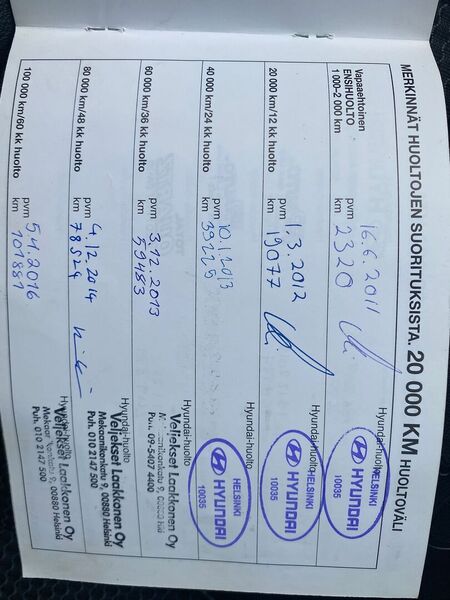 MERKINNÄT HUOLTOJEN SUORITUKSISTA. 20 000 KM HUOLTOVÄLI
Vapaaehtoinen
ENSIHUOLTO
1 000–2 000 km
pvm 16.6.2011
km 2320
Hyundai-huolto
HELSINKI
HYUNDAI
10035
20 000 km/12 kk huolto
pvm 1.3.2012
km 19077
Hyundai-huolto
HELSINKI
HYUNDAI
10035
40 000 km/24 kk huolto
pvm 10.1.2013
km
Hyundai-huolto
HELSINKI
HYUNDAI
10035
60 000 km/36 kk huolto
pvm 3.12.2013
km 59483
Hyundai-huolto
Veljekset Laakkonen Oy
Puh. 09-5407 4400
80 000 km/48 kk huolto
pvm 4.12.2014
km 78524
Hyundai-huolto
Veljekset Laakkonen Oy
Mekaanikonkatu 9, 00880 Helsinki
Puh. 010 2147 500
100 000 km/60 kk huolto
pvm 5.4.2016
km 101881
Hyundai-huolto
Veljekset Laakkonen Oy
9, 00880 Helsinki
Puh. 010 2147 500